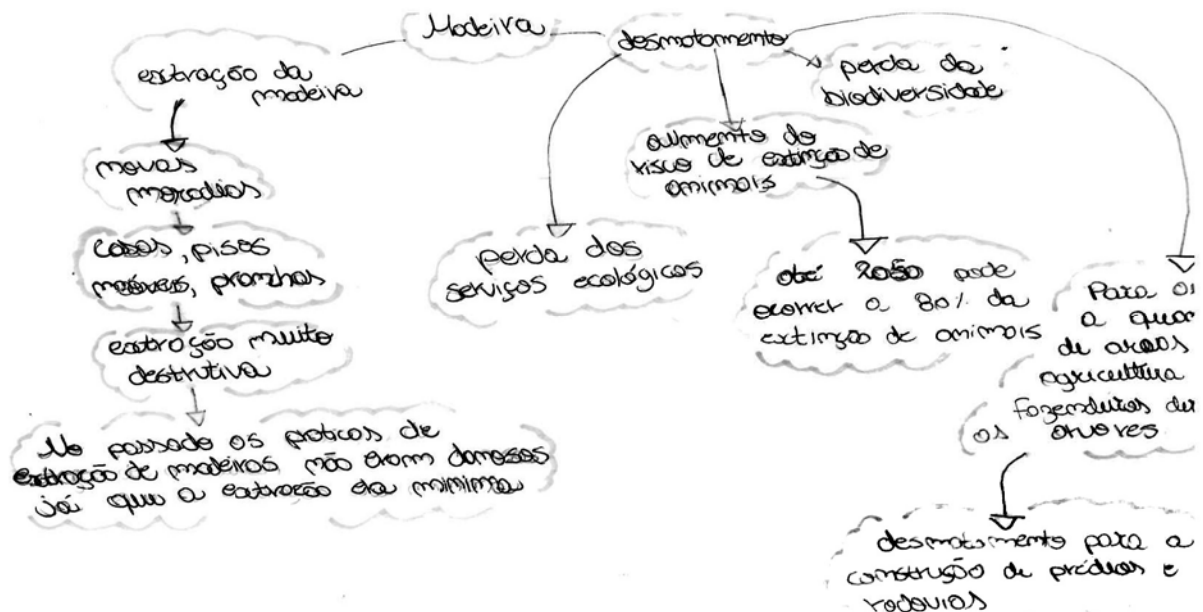 Madeira
extração da
madeira
novas
moradias
casas, pisos
moóveis, pranchas
extração muito
destrutiva
No passado as praticas de
extração de madeiras não eram damosas
já que a extração era minima
desmatamento
perda da
biodiversidade
aumento do
risco de extinção de
animais
até 2050 pode
ocorrer a 80% da
extinção de animais
perda dos
serviços ecológicos
Para
a
de areas
agricultura
os
arvores
desmatamento para a
construção de prédios e
rodovias